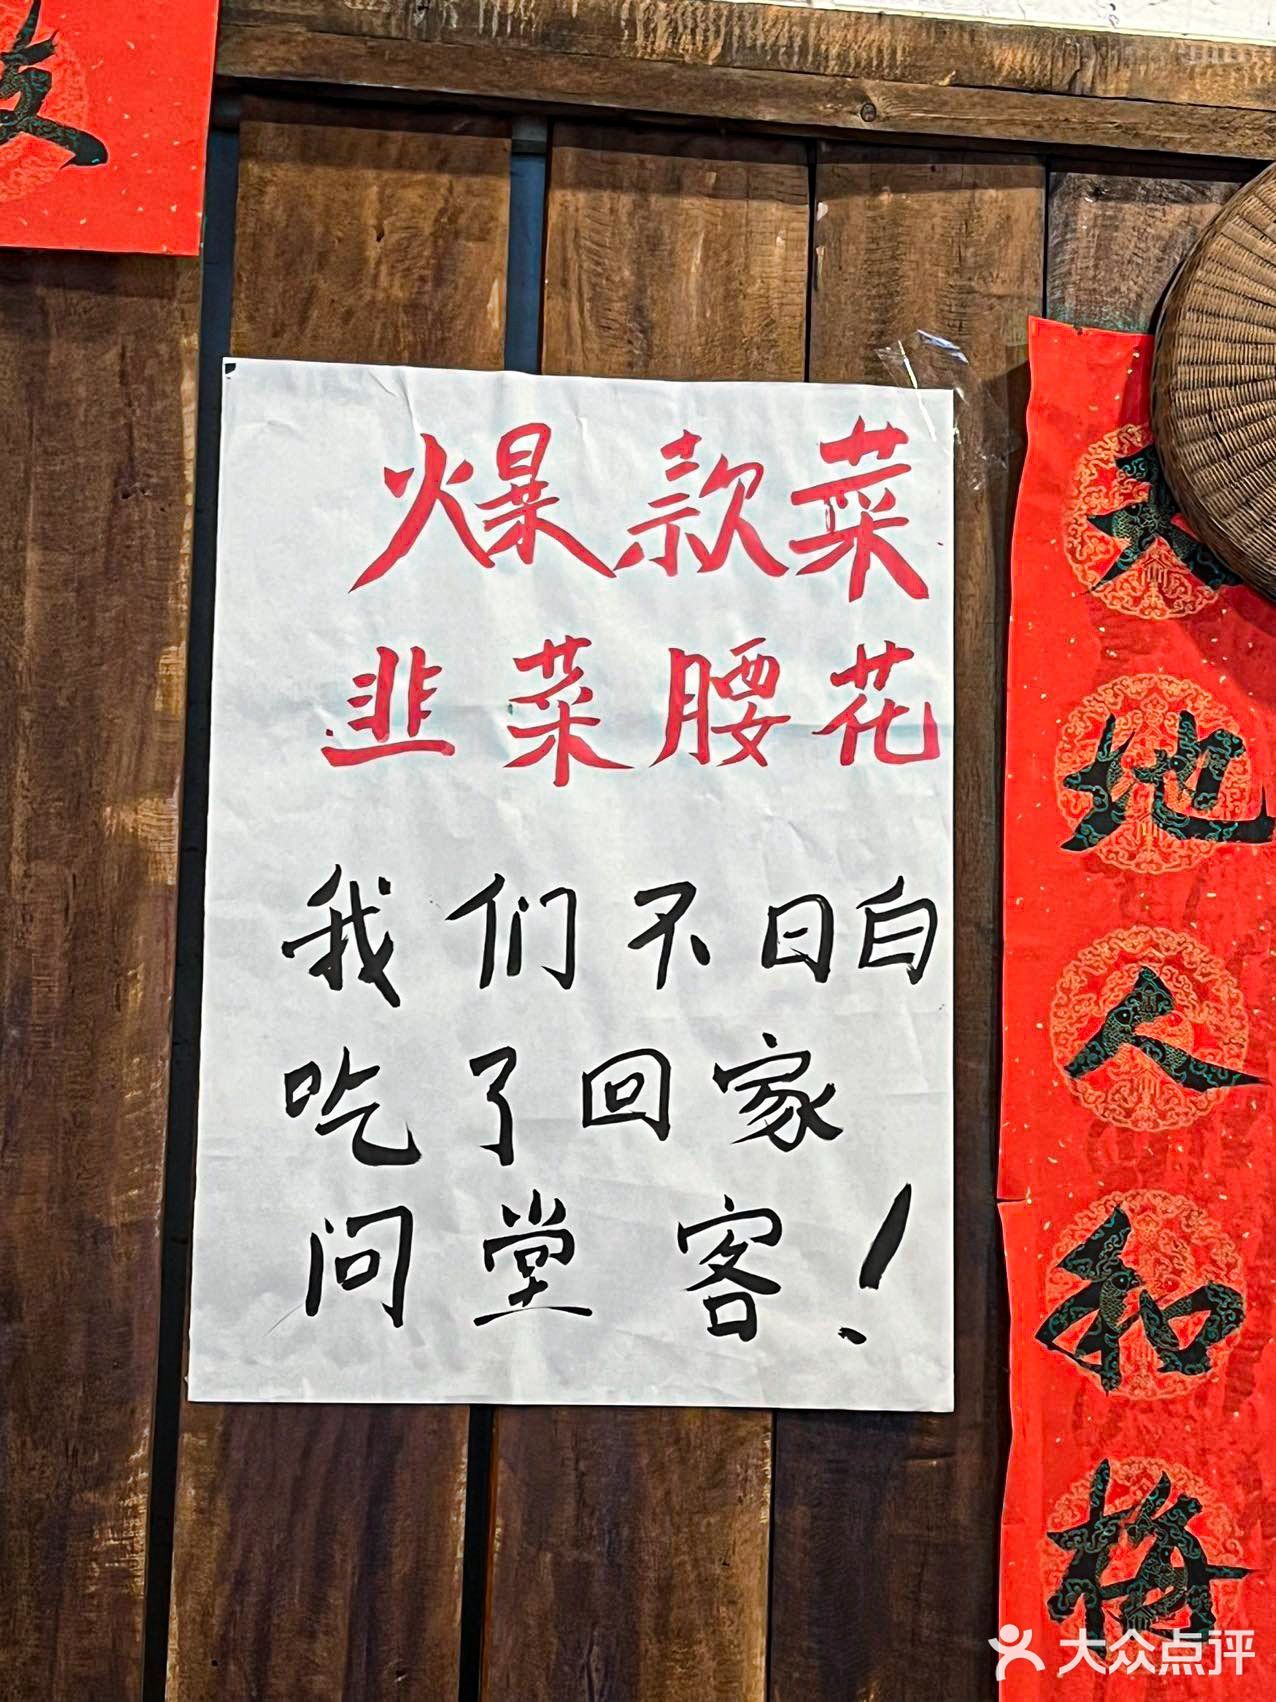 爆款菜
韭菜腰花
我们不日白
吃了回家
问堂客！
天地人和
大众点评